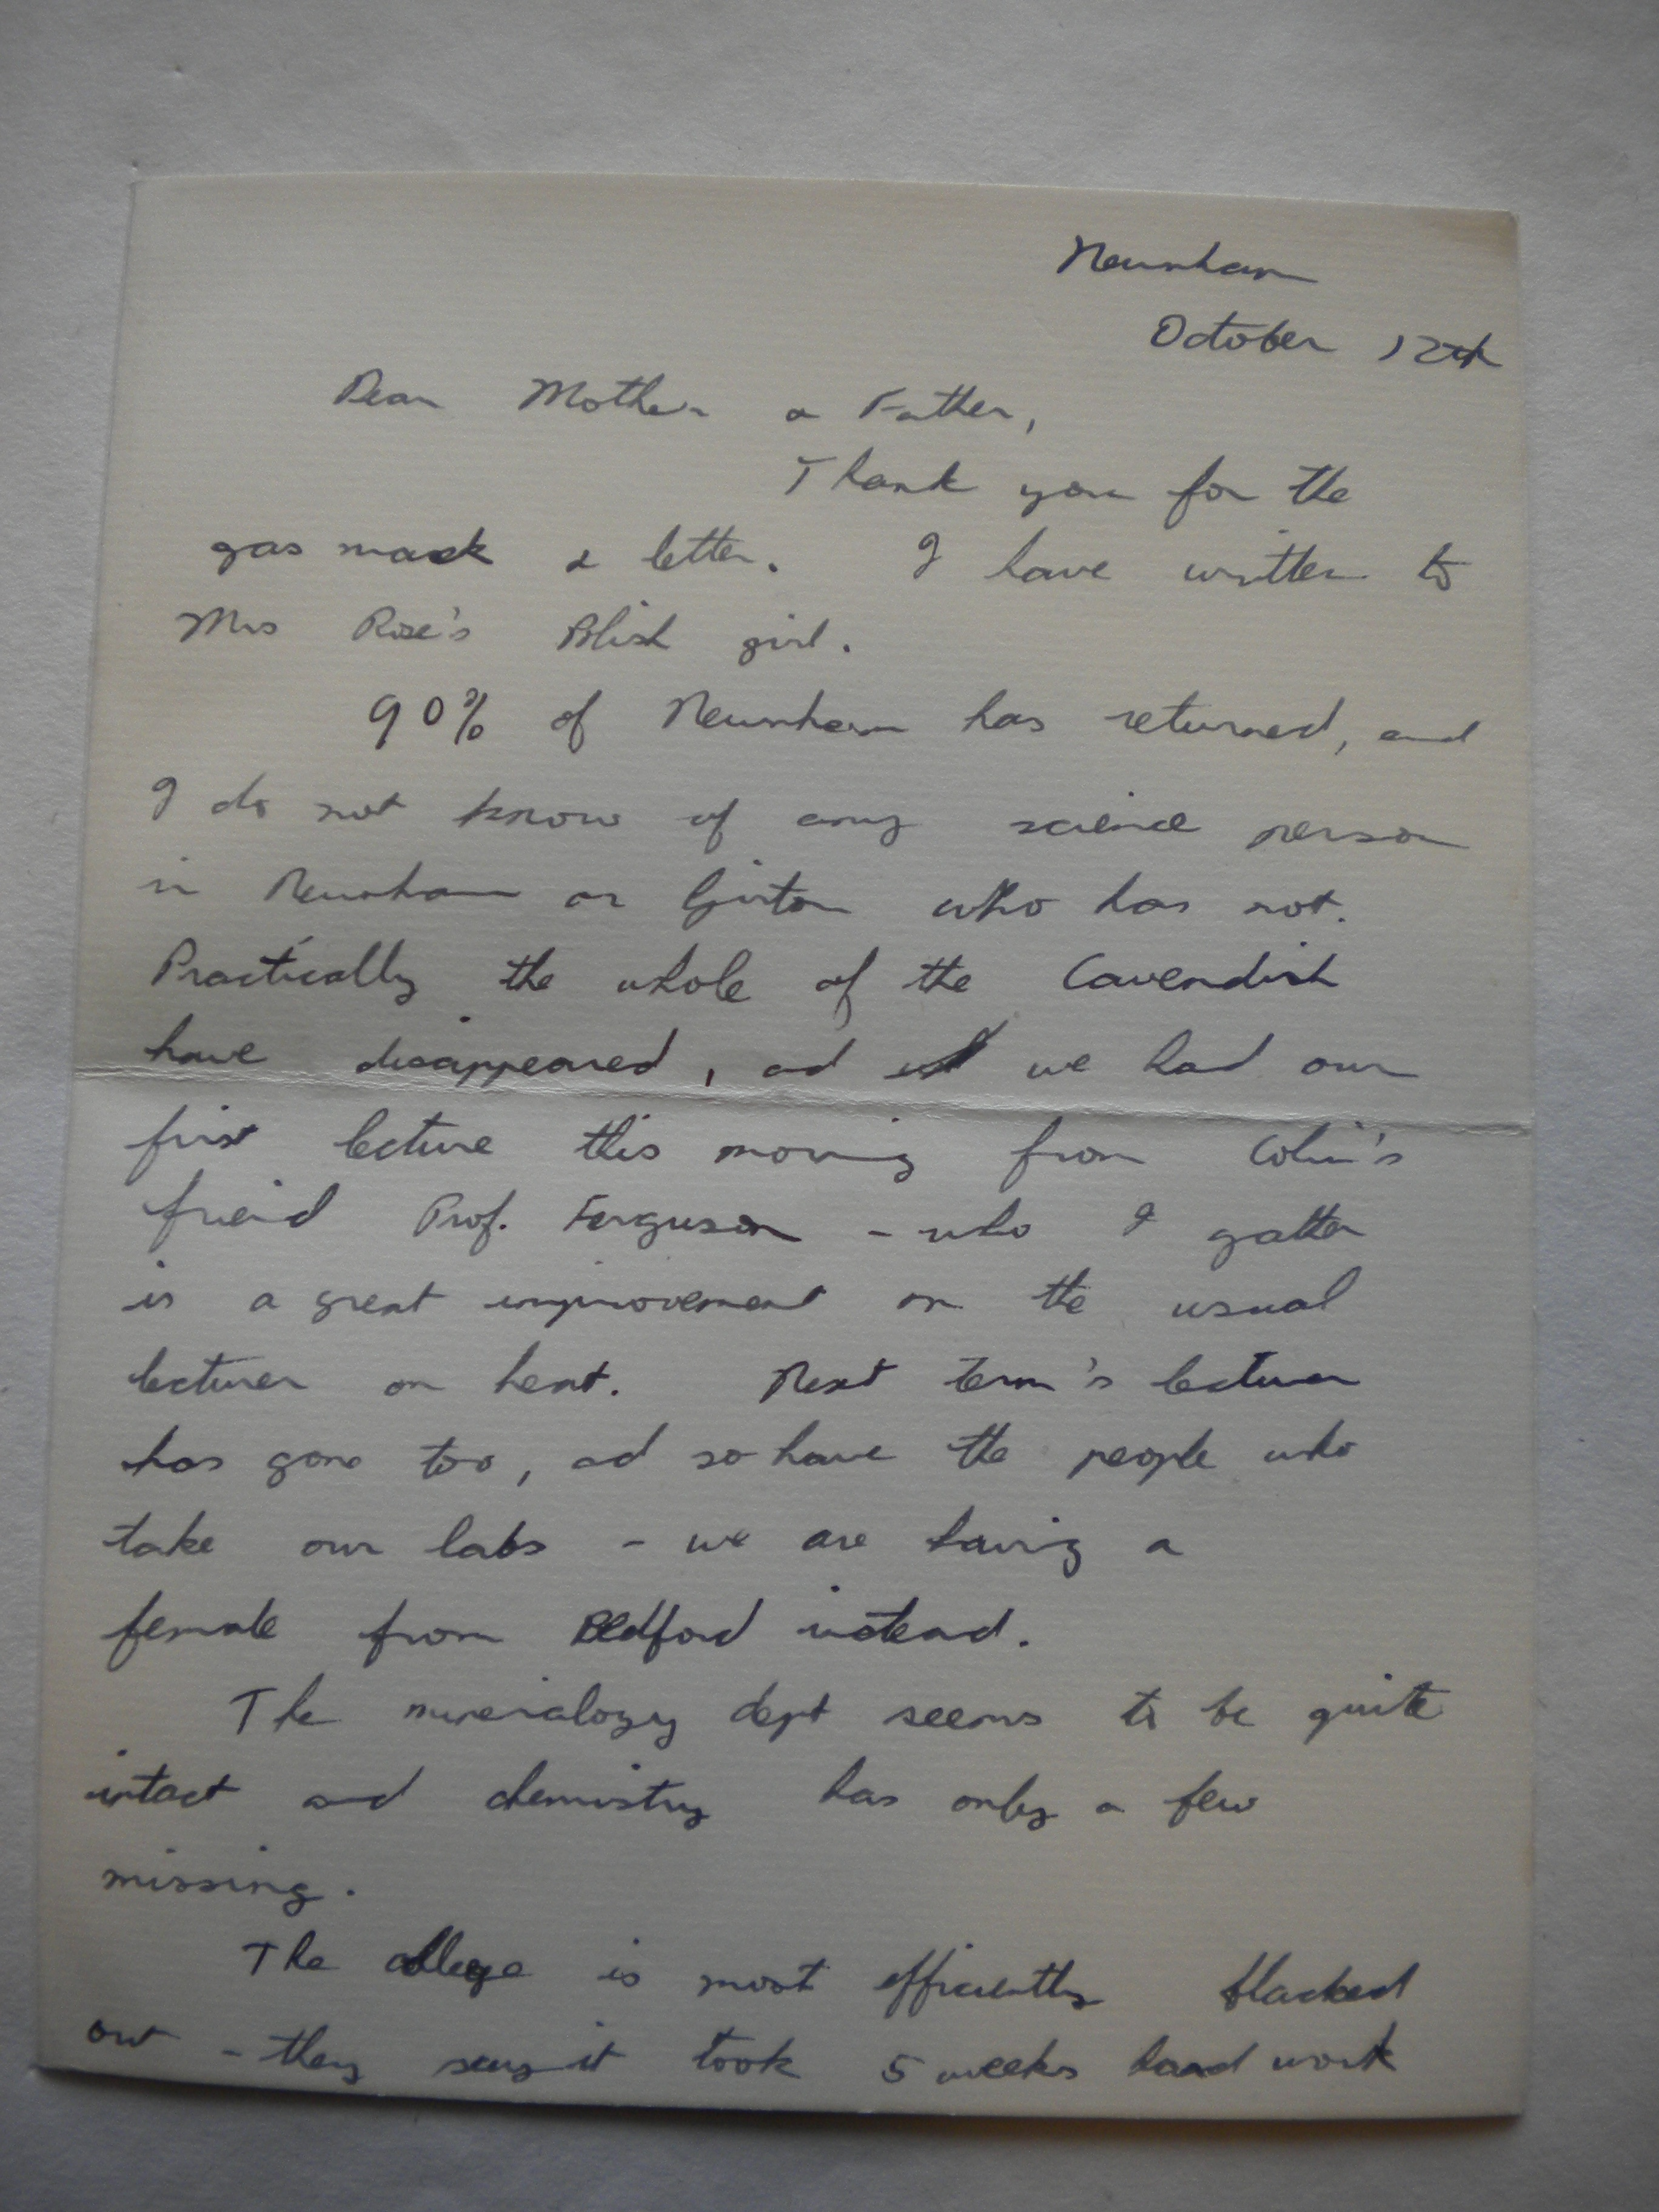 Newnham
October 12th
Dear Mother & Father,
Thank you for the
gas mask & letter. I have written to
Mrs Rose's Polish girl.
90% of Newnham has returned, and
I do not know of any science person
in Newnham or Girton who has not.
Practically the whole of the Cavendish
have disappeared, and we had our
first lecture this morning from Colin's
friend Prof. Ferguson - who I gather
is a great improvement on the usual
lecturer on heat. Next term's lecturer
has gone too, and so have the people who
take our labs - we are having a
female from Bedford instead.
The mineralogy dept seems to be quite
intact and chemistry has only a few
missing.
The college is most efficiently blacked
out - they say it took 5 weeks hard work